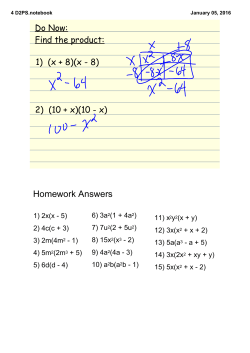 4 D2PS.notebook
January 05, 2016
Do Now:
Find the product:
x +8
1) (x + 8)(x - 8)
x x² 8x
-8 -8x -64
x² - 64
x² - 64
2) (10 + x)(10 - x)
100 - x²
Homework Answers
1) 2x(x - 5)
2) 4c(c + 3)
3) 2m(4m² - 1)
4) 5m²(2m³ + 5)
5) 6d(d - 4)
6) 3a²(1 + 4a²)
7) 7u²(2 + 5u²)
8) 15x²(x² - 2)
9) 4a²(4a - 3)
10) a²b(a²b - 1)
11) x²y²(x + y)
12) 3x(x² + x + 2)
13) 5a(a⁵ - a + 5)
14) 3x(2x² + xy + y)
15) 5x(x² + x - 2)